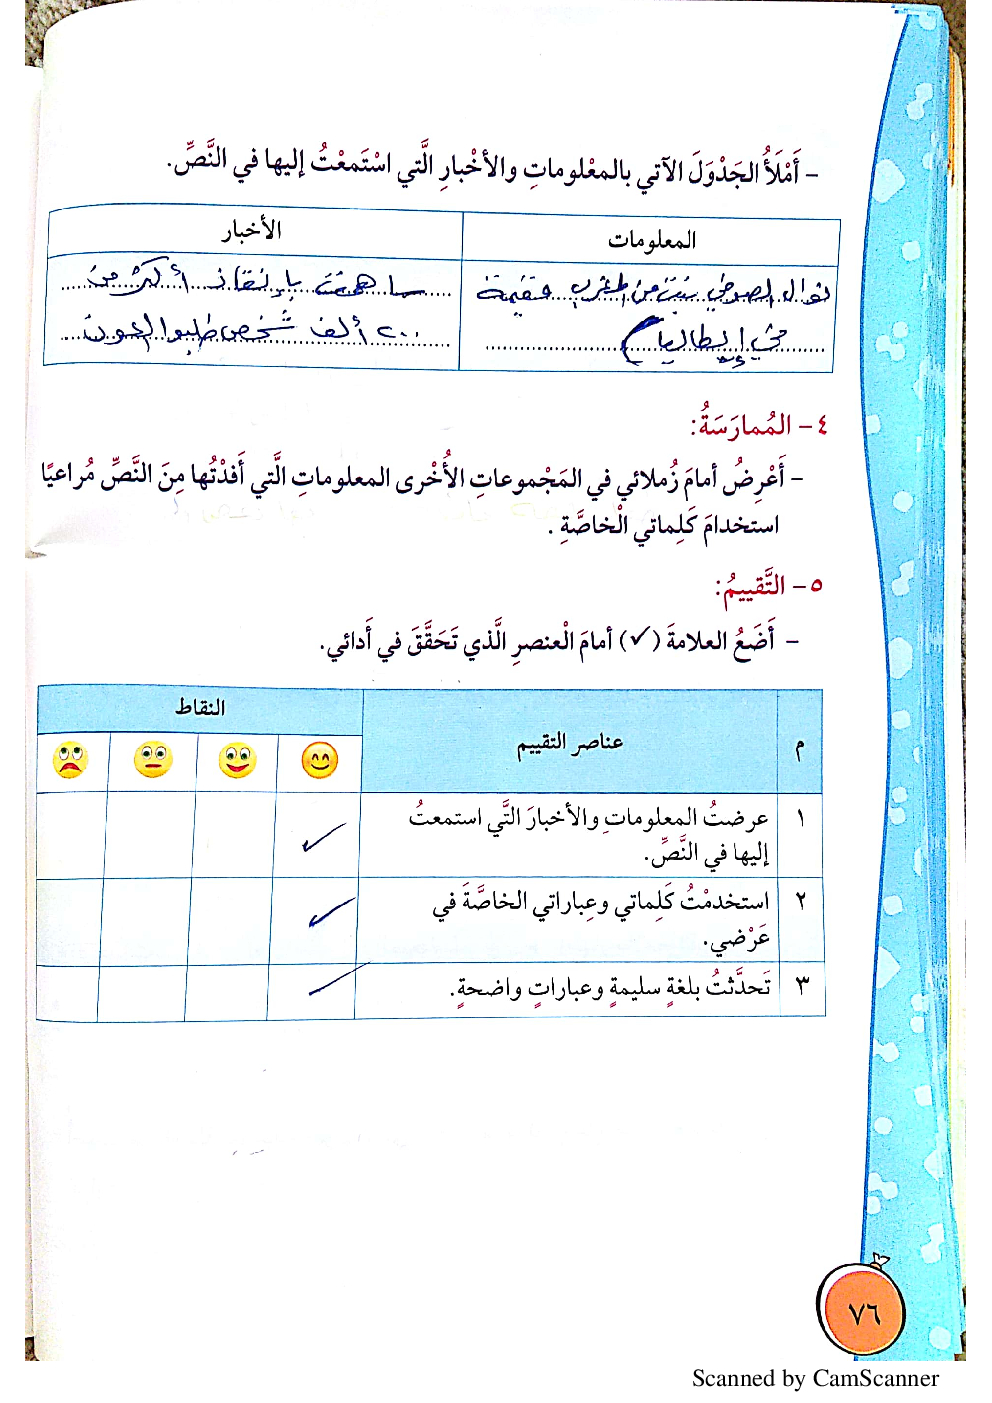 - أَمْلَأُ الجَدْوَلَ الآتي بالمعْلوماتِ والأخْبارِ الَّتي اسْتَمعْتُ إليها في النَّصِّ.
المعلومات
الأخبار
نوال الصوفي بنت من المغرب مقيمة
في إيطاليا
ساهمت بإنقاذ أكثر من
٢٠٠ ألف شخص طلبوا العون
٤- المُمارَسَةُ:
- أَعْرِضُ أمامَ زُملائي في المَجْموعاتِ الأُخْرى المعلوماتِ الَّتي أَفَدْتُها مِنَ النَّصِّ مُراعيًا
استخدامَ كَلِماتي الْخاصَّةِ .
٥- التَّقييمُ:
- أَضَعُ العلامةَ (✓) أمامَ الْعنصرِ الَّذي تَحَقَّقَ في أَدائي.
م
عناصر التقييم
النقاط
١
عرضتُ المعلوماتِ والأخبارَ التَّي استمعتُ
إليها في النَّصِّ.
✓
٢
استخدمْتُ كَلِماتي وعِباراتي الخاصَّةَ في
عَرْضي.
✓
٣
تَحدَّثتُ بلغةٍ سليمةٍ وعباراتٍ واضحةٍ.
✓
٧٦
Scanned by CamScanner